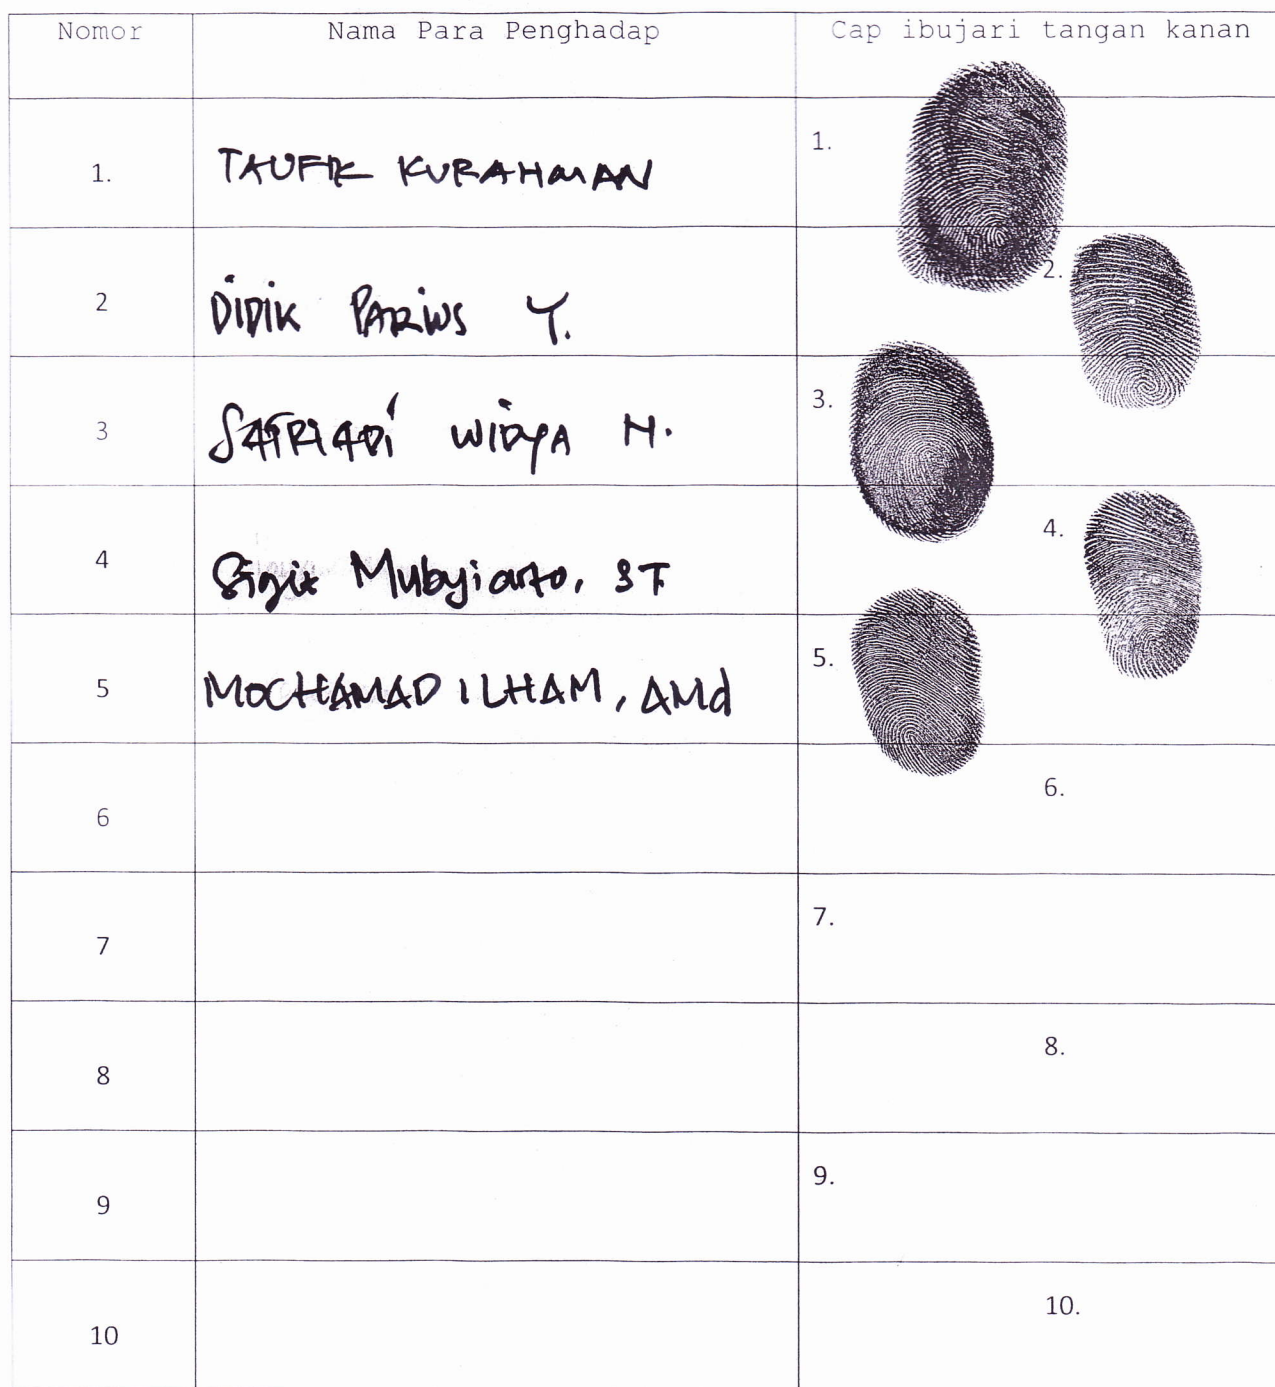 Nomor Nama Para Penghadap Cap ibujari tangan kanan
1. TAUFIK KURAHMAN 1.
2 DIDIK PARIWS Y. 2.
3 SATRIADI WIDYA H. 3.
4 Sigit Mubyiarto, ST 4.
5 MOCHAMAD ILHAM, AMd 5.
6 6.
7 7.
8 8.
9 9.
10 10.